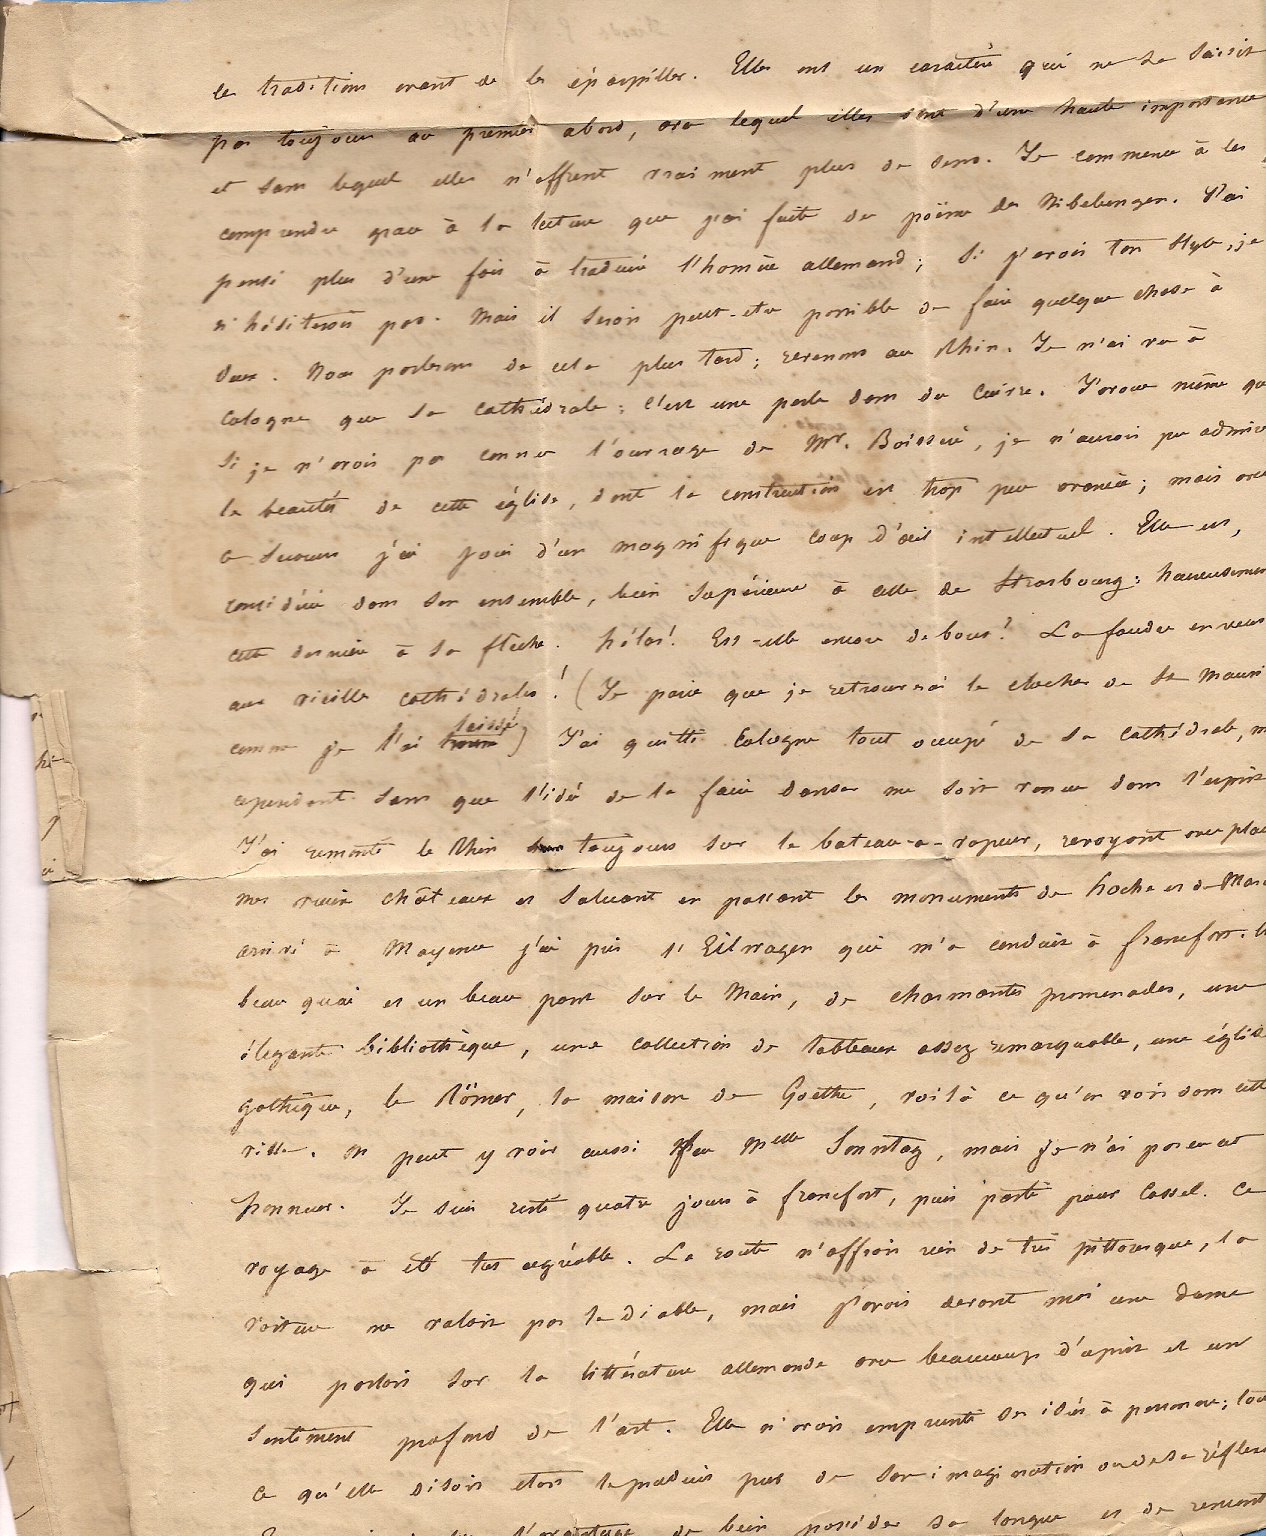 les traditions avant de les éparpiller. Elles ont un caractère qui ne se saisit
pas toujours au premier abord, avec lequel elles sont d'une haute importance
et sans lequel elles n'offrent vraiment plus de sens. Je commence à les
comprendre grace à la lecture que j'ai faite du poëme des Nibelungen. J'ai
pensé plus d'une fois à traduire l'homère allemand; si j'avois ton style, je
n'hésiterois pas. Mais il seroit peut-etre possible de faire quelque chose à
deux. Nous parlerons de cela plus tard; revenons au Rhin. Je n'ai vu à
Cologne que sa cathédrale: c'est une perle dans du cuivre. J'avoue même que
si je n'avois pas connu l'ouvrage de Mr. Boisserée, je n'aurois pu admirer
les beautés de cette église, dont la construction est trop peu avancée; mais avec
ce secours j'ai joui d'un magnifique coup d'œil intellectuel. Elle est,
considérée dans son ensemble, bien supérieure à celle de Strasbourg: heureusement
cette dernière a sa flèche. hélas! Est-elle encore debout? La foudre en veut
aux vieilles cathédrales! (Je parie que je retrouverai le clocher de St Mauri
comme je l'ai laissé) J'ai quitté Cologne tout occupé de sa cathédrale,
cependant sans que l'idée de la faire danser me soit venue dans l'esprit
J'ai remonté le Rhin toujours sur le bateau-a-vapeur, revoyant avec plai
mes vieux châteaux et saluant en passant les monuments de hoche et de Marc
arrivé à Mayence j'ai pris l'Eilwagen qui m'a conduit à francfort. Un
beau quai et un beau pont sur le Main, de charmantes promenades, une
élégante bibliothèque, une collection de tableaux assez remarquable, une église
gothique, le Römer, la maison de Goethe, voilà ce qu'on voit dans cette
ville. On peut y voir aussi Melle Sonntag, mais je n'ai pas eu cet
honneur. Je suis resté quatre jours à francfort, puis parti pour Cassel. Ce
voyage a été très agréable. La route n'offroit rien de très pittoresque, la
voiture ne valoit pas le diable, mais j'avois devant moi une dame
qui parloit sur la littérature allemande avec beaucoup d'esprit et un
sentiment profond de l'art. Elle n'avoit emprunté ses idées à personne; tout
ce qu'elle disoit etoit le produit pur de son imagination ou de sa réflexi
l'avantage de bien posséder sa langue et de